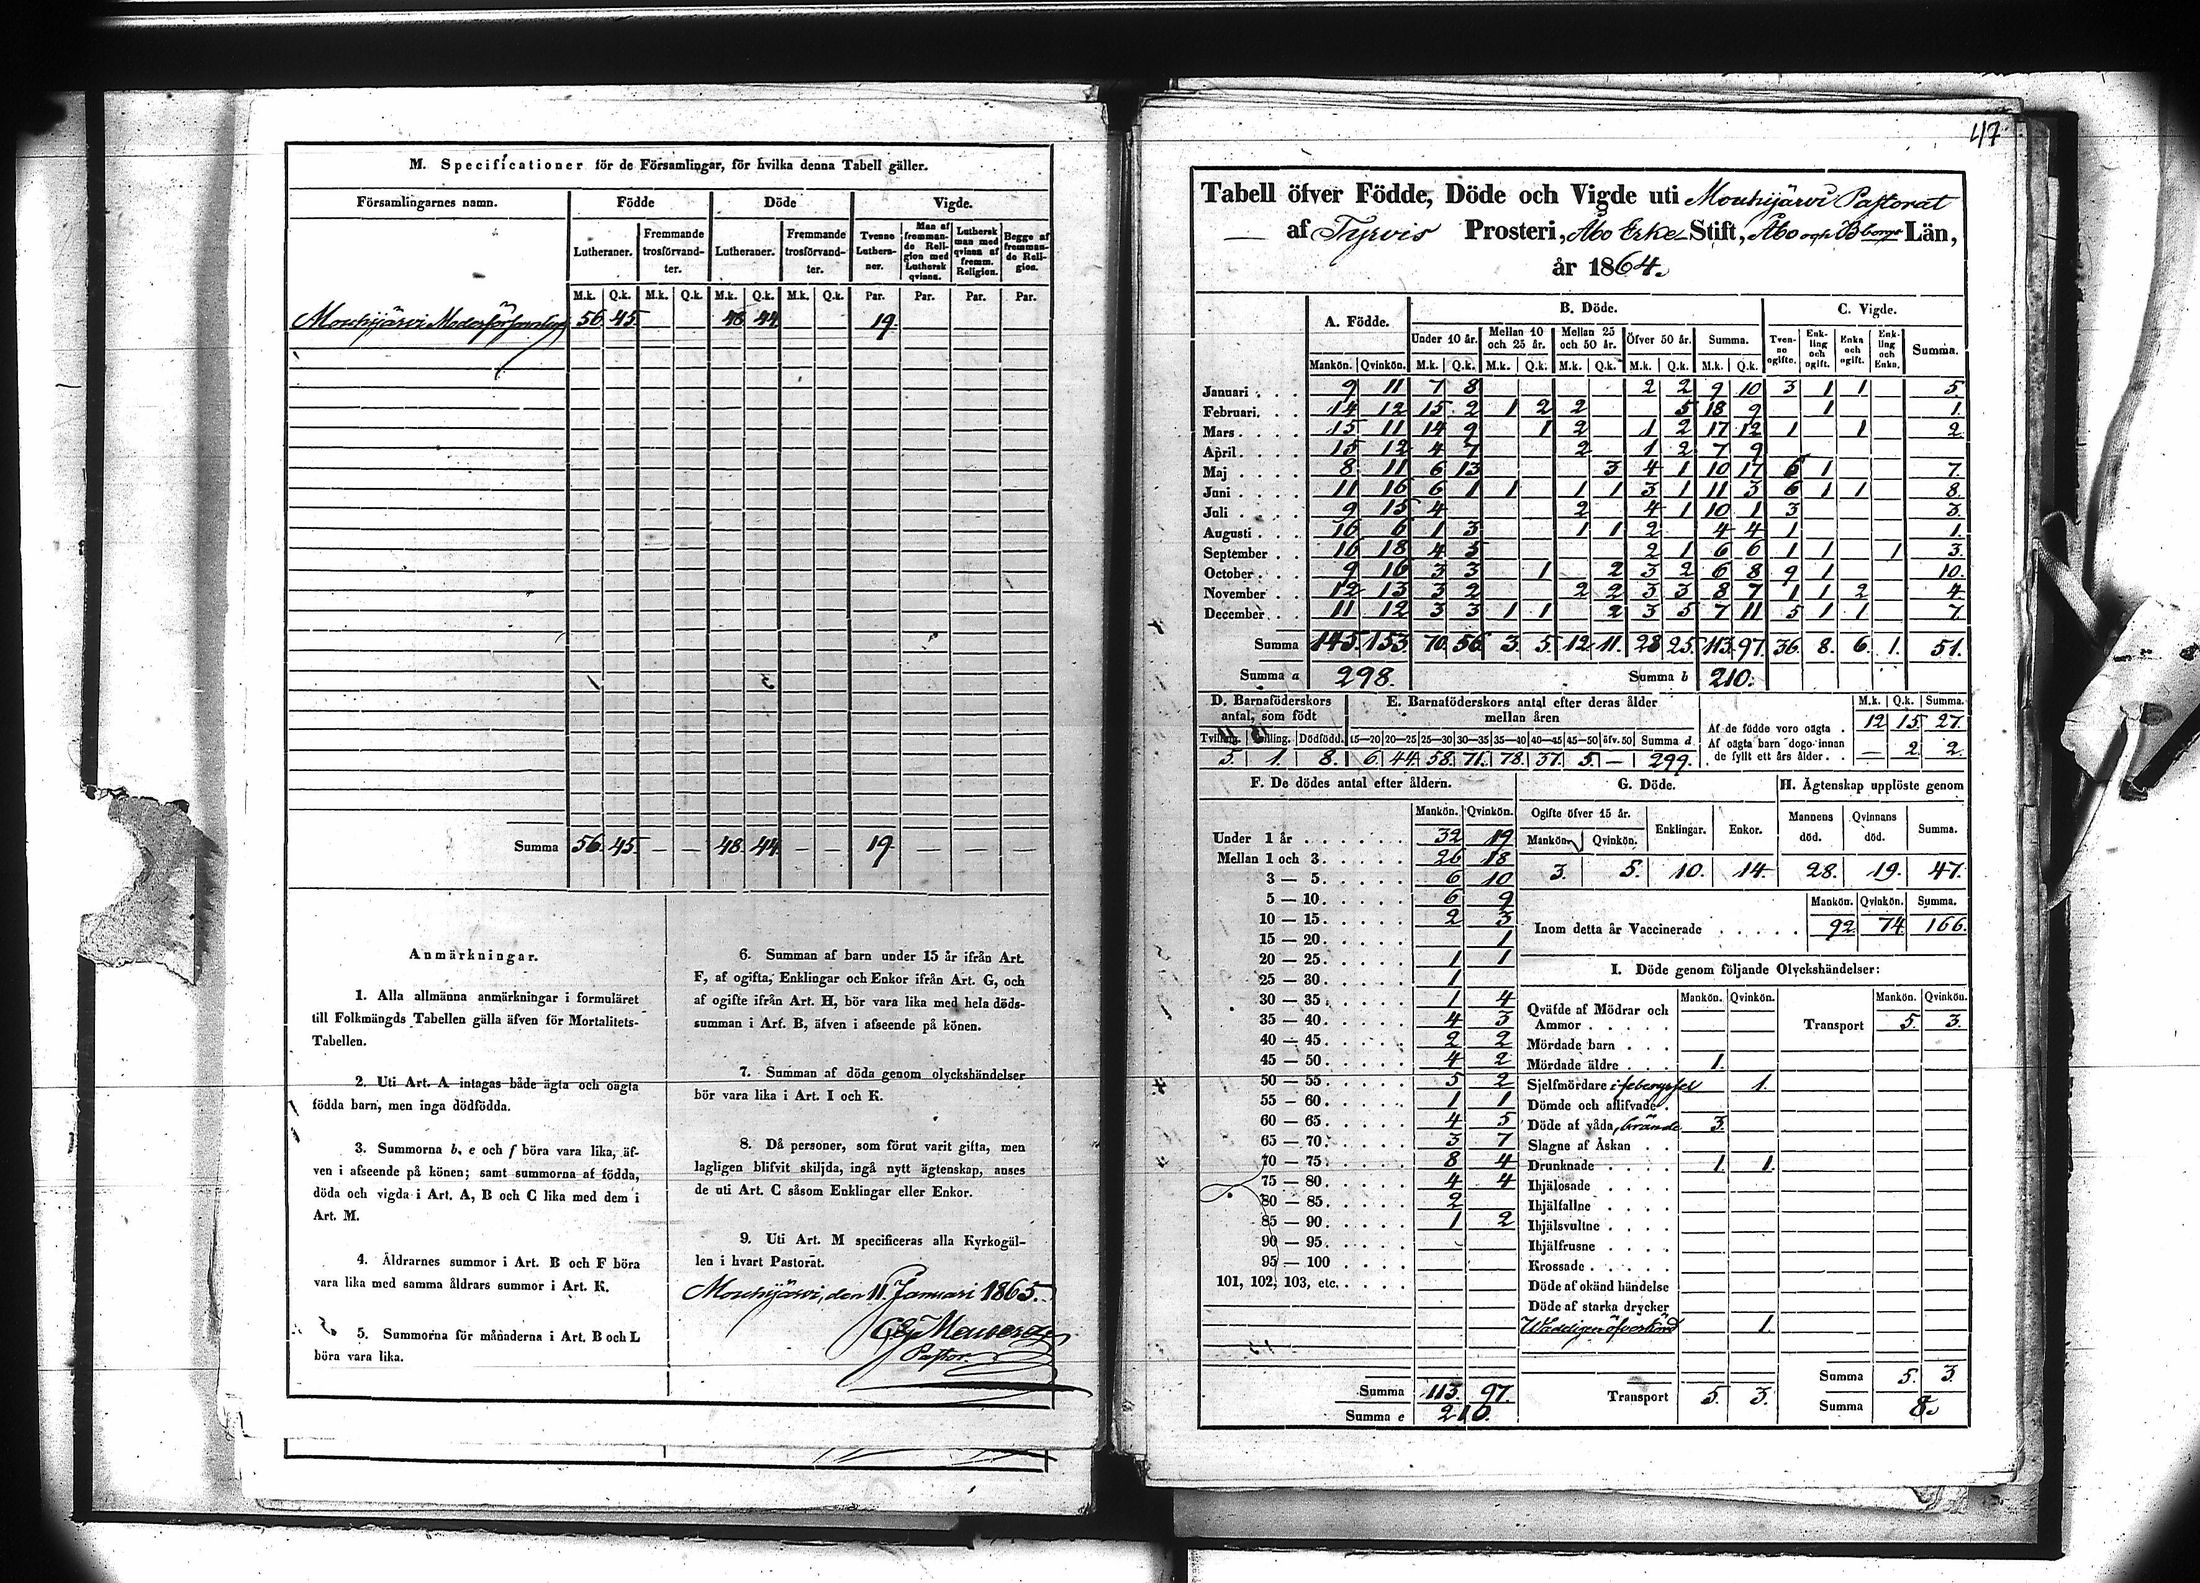 M. Specificationer för de Församlingar, för hvilka denna Tabell gäller.
Församlingarnes namn. Födde Döde Vigde.
Lutheraner. Fremmande trosförvandter. Lutheraner. Fremmande trosförvandter. Tvenne Lutheraner. Man af fremmande Religion med Luthersk qvinna. Luthersk man med qvinna af fremm. Religion. Begge af fremmande Religion.
M.k. Q.k. M.k. Q.k. M.k. Q.k. M.k. Q.k. Par. Par. Par. Par.
Mouhijärvi Moderförsamling 56 45 48 44 19.
Summa 56. 45. — — 48. 44. — — 19. — — —
Anmärkningar.
1. Alla allmänna anmärkningar i formuläret
till Folkmängds Tabellen gälla äfven för Mortalitets-
Tabellen.
2. Uti Art. A intagas både ägta och oägta
födda barn, men inga dödfödda.
3. Summorna b, e och f böra vara lika, äf-
ven i afseende på könen; samt summorna af födda,
döda och vigda i Art. A, B och C lika med dem i
Art. M.
4. Åldrarnes summor i Art. B och F böra
vara lika med samma åldrars summor i Art. K.
5. Summorna för månaderna i Art. B och L
böra vara lika.
6. Summan af barn under 15 år ifrån Art.
F, af ogifta, Enklingar och Enkor ifrån Art. G, och
af ogifte ifrån Art. H, bör vara lika med hela döds-
summan i Art. B, äfven i afseende på könen.
7. Summan af döda genom olyckshändelser
bör vara lika i Art. I och K.
8. Då personer, som förut varit gifta, men
lagligen blifvit skiljda, ingå nytt ägtenskap, anses
de uti Art. C såsom Enklingar eller Enkor.
9. Uti Art. M specificeras alla Kyrkogäl-
len i hvart Pastorat.
Mouhijärvi, den 11. Januari 1865.
Pastor.
47
Tabell öfver Födde, Döde och Vigde uti Mouhijärvi Pastorat
— af Tyrvis Prosteri, Åbo Erke Stift, Åbo och Bborgs Län,
år 1864.
A. Födde. B. Döde. C. Vigde.
Under 10 år. Mellan 10 och 25 år. Mellan 25 och 50 år. Öfver 50 år. Summa. Tvenne ogifte. Enkling och ogift. Enka och ogift. Enkling och Enka. Summa.
Mankön. Qvinkön. M.k. Q.k. M.k. Q.k. M.k. Q.k. M.k. Q.k. M.k. Q.k.
Januari 9 11 7 8 2 2 9 10 3 1 1 5.
Februari. 14 12 15 2 1 2 2 5 18 9 1 1.
Mars 15 11 14 9 1 2 1 2 17 12 1 1 2.
April 15 12 4 7 2 1 2 7 9
Maj 8 11 6 13 3 4 1 10 17 6 1 7.
Juni 11 16 6 1 1 1 1 3 1 11 3 6 1 1 8.
Juli 9 15 4 2 4 1 10 1 3 3.
Augusti 16 6 1 3 1 1 2 4 4 1 1.
September 16 18 4 5 2 1 6 6 1 1 1 3.
October 9 16 3 3 1 2 3 2 6 8 9 1 10.
November 12 13 3 2 2 2 3 3 8 7 1 1 2 4.
December 11 12 3 3 1 1 2 3 5 7 11 5 1 1 7.
Summa 145. 153. 70. 56. 3. 5. 12. 11. 28. 25. 113. 97. 36. 8. 6. 1. 51.
Summa a 298. Summa b 210.
D. Barnaföderskors antal, som födt E. Barnaföderskors antal efter deras ålder mellan åren M.k. Q.k. Summa.
Af de födde voro oägta 12. 15. 27.
Tvilling. Trilling. Dödfödd. 15—20 20—25 25—30 30—35 35—40 40—45 45—50 öfv. 50 Summa d
Af oägta barn dogo innan de fyllt ett års ålder — 2. 2.
5. 1. 8. 6. 44. 58. 71. 78. 37. 5. — 299.
F. De dödes antal efter åldern. G. Döde. H. Ägtenskap upplöste genom
Mankön. Qvinkön. Ogifte öfver 15 år. Mankön. Qvinkön. Enklingar. Enkor. Mannens död. Qvinnans död. Summa.
3. 5. 10. 14. 28. 19. 47.
Under 1 år 32 19
Mellan 1 och 3 26 18
3 — 5 6 10
5 — 10 6 9
10 — 15 2 3
15 — 20 1
20 — 25 1 1
25 — 30 1
30 — 35 1 4
35 — 40 4 3
40 — 45 2 2
45 — 50 4 2
50 — 55 5 2
55 — 60 1 1
60 — 65 4 5
65 — 70 3 7
70 — 75 8 4
75 — 80 4 4
80 — 85 2
85 — 90 1 2
90 — 95
95 — 100
101, 102, 103, etc.
Summa 113. 97.
Summa e 210.
Mankön. Qvinkön. Summa.
Inom detta år Vaccinerade 92. 74. 166.
I. Döde genom följande Olyckshändelser:
Mankön. Qvinkön. Mankön. Qvinkön.
Qväfde af Mödrar och Ammor Transport 5. 3.
Mördade barn
Mördade äldre 1.
Sjelfmördare 1.
Dömde och aflifvade
Döde af våda, brände 3.
Slagne af Åskan
Drunknade 1. 1.
Ihjälosade
Ihjälfallne
Ihjälsvultne
Ihjälfrusne
Krossade
Döde af okänd händelse
Döde af starka drycker
Wådligen öfverkörd 1.
Summa 5. 3.
Transport 5. 3. Summa 8.